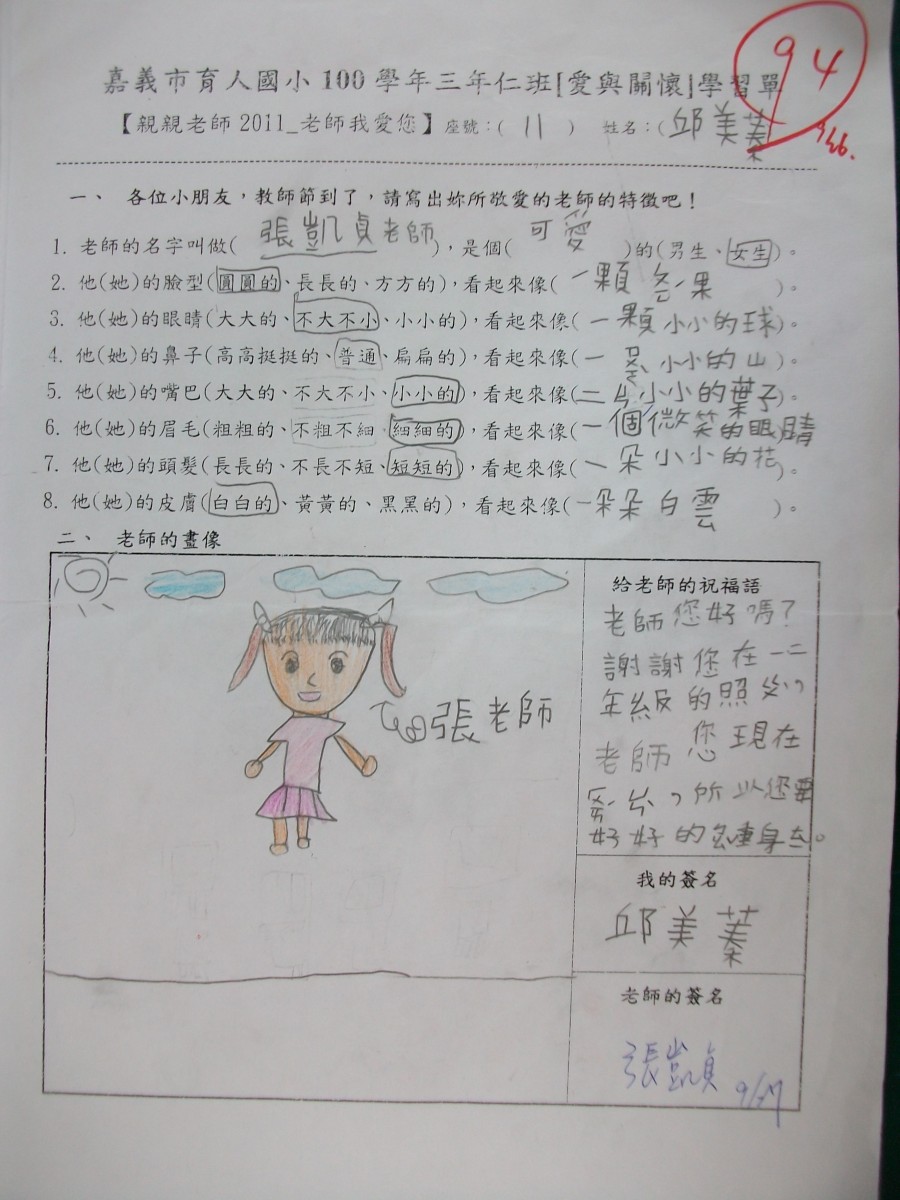 94
9/26.
嘉義市育人國小100學年三年仁班[愛與關懷]學習單
【親親老師2011_老師我愛您】座號：( 11 ) 姓名：(邱美蓁
一、 各位小朋友，教師節到了，請寫出妳所敬愛的老師的特徵吧！
1. 老師的名字叫做( 張凱貞老師 )，是個( 可愛 )的(男生、女生)。
2. 他(她)的臉型(圓圓的、長長的、方方的)，看起來像( 一顆 果 )。
3. 他(她)的眼睛(大大的、不大不小、小小的)，看起來像(一顆小小的球)。
4. 他(她)的鼻子(高高挺挺的、普通、扁扁的)，看起來像(一 小小的山)。
5. 他(她)的嘴巴(大大的、不大不小、小小的)，看起來像(二ㄆ小小的葉子)。
6. 他(她)的眉毛(粗粗的、不粗不細、細細的)，看起來像(一個微笑的眼睛
7. 他(她)的頭髮(長長的、不長不短、短短的)，看起來像(一朵小小的花)。
8. 他(她)的皮膚(白白的、黃黃的、黑黑的)，看起來像(一朵朵白雲 )。
二、 老師的畫像
張老師
給老師的祝福語
老師您好嗎？
謝謝您在一二
年級的照
老師您現在
所以您要
好好的 重身
我的簽名
邱美蓁
老師的簽名
張凱貞